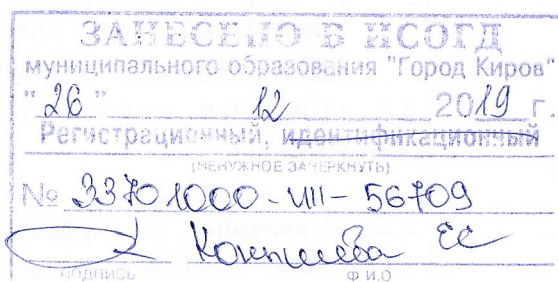 ЗАНЕСЕНО В ИСОГД
муниципального образования "Город Киров"
"26" 12 2019 г.
Регистрационный, идентификационный
(НЕНУЖНОЕ ЗАЧЕРКНУТЬ)
№ 33701000-VIII-56709
ЕС
ПОДПИСЬ Ф.И.О